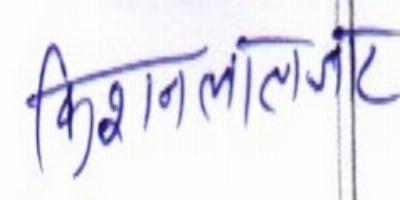 किशनलालजाट